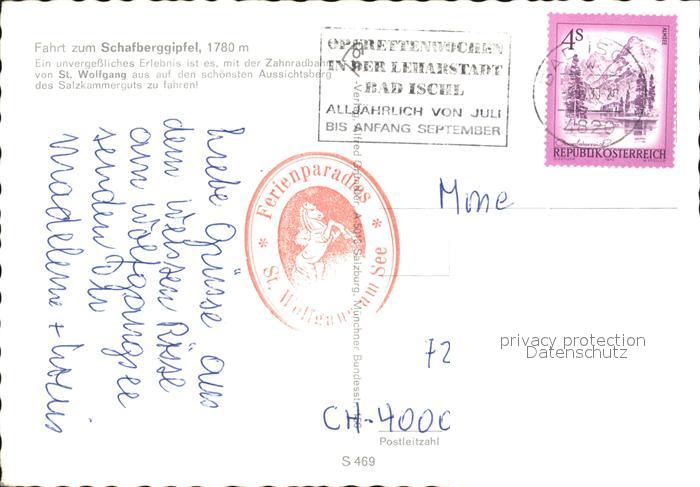 Fahrt zum Schafberggipfel, 1780 m
Ein unvergeßliches Erlebnis ist es, mit der Zahnradbahn
von St. Wolfgang aus auf den schönsten Aussichtsberg
des Salzkammerguts zu fahren!
OPERETTENWOCHEN
IN DER LEHARSTADT
BAD ISCHL
ALLJÄHRLICH VON JULI
BIS ANFANG SEPTEMBER
4S
ALMSEE
REPUBLIK ÖSTERREICH
4820
liebe Grüsse aus
dem Weissen Rössl
am Wolfgangsee
senden Dir
Madeleine + Louis
Ferienparadies
St. Wolfgang am See
Verlag, Alfred A-5013 Salzburg, Münchner Bundesstr.
72
CH-4000
Postleitzahl
S 469
privacy protection
Datenschutz